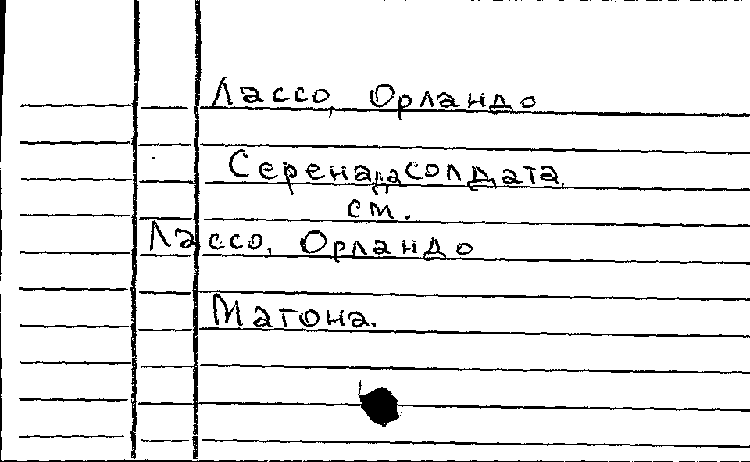 Лассо, Орландо
Серенада солдата
см.
Лассо, Орландо
Матона.